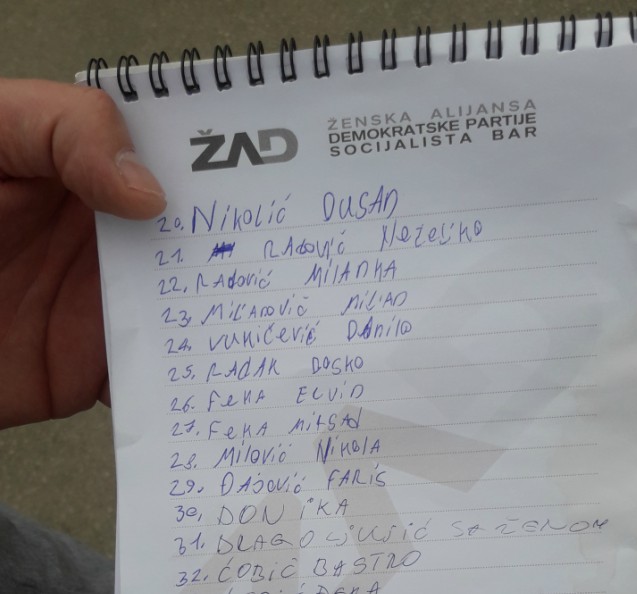 ŽAD
ŽENSKA ALIJANSA
DEMOKRATSKE PARTIJE
SOCIJALISTA BAR
20. Nikolić DUSAN
21. RADOVIĆ Nedeljko
22. RADOVIĆ MILANKA
23. MILANOVIĆ MILAN
24. VUKIČEVIĆ DANILO
25. RADAK BOSKO
26. FEKA ELVID
27. FEKA MIRSAD
28. MILOVIĆ NIKOLA
29. ĐAJOVIĆ FARIS
30. DON iKA
31. DRAGOLJUSIĆ SA ŽENOM
32. ĆOBIĆ BASTRO